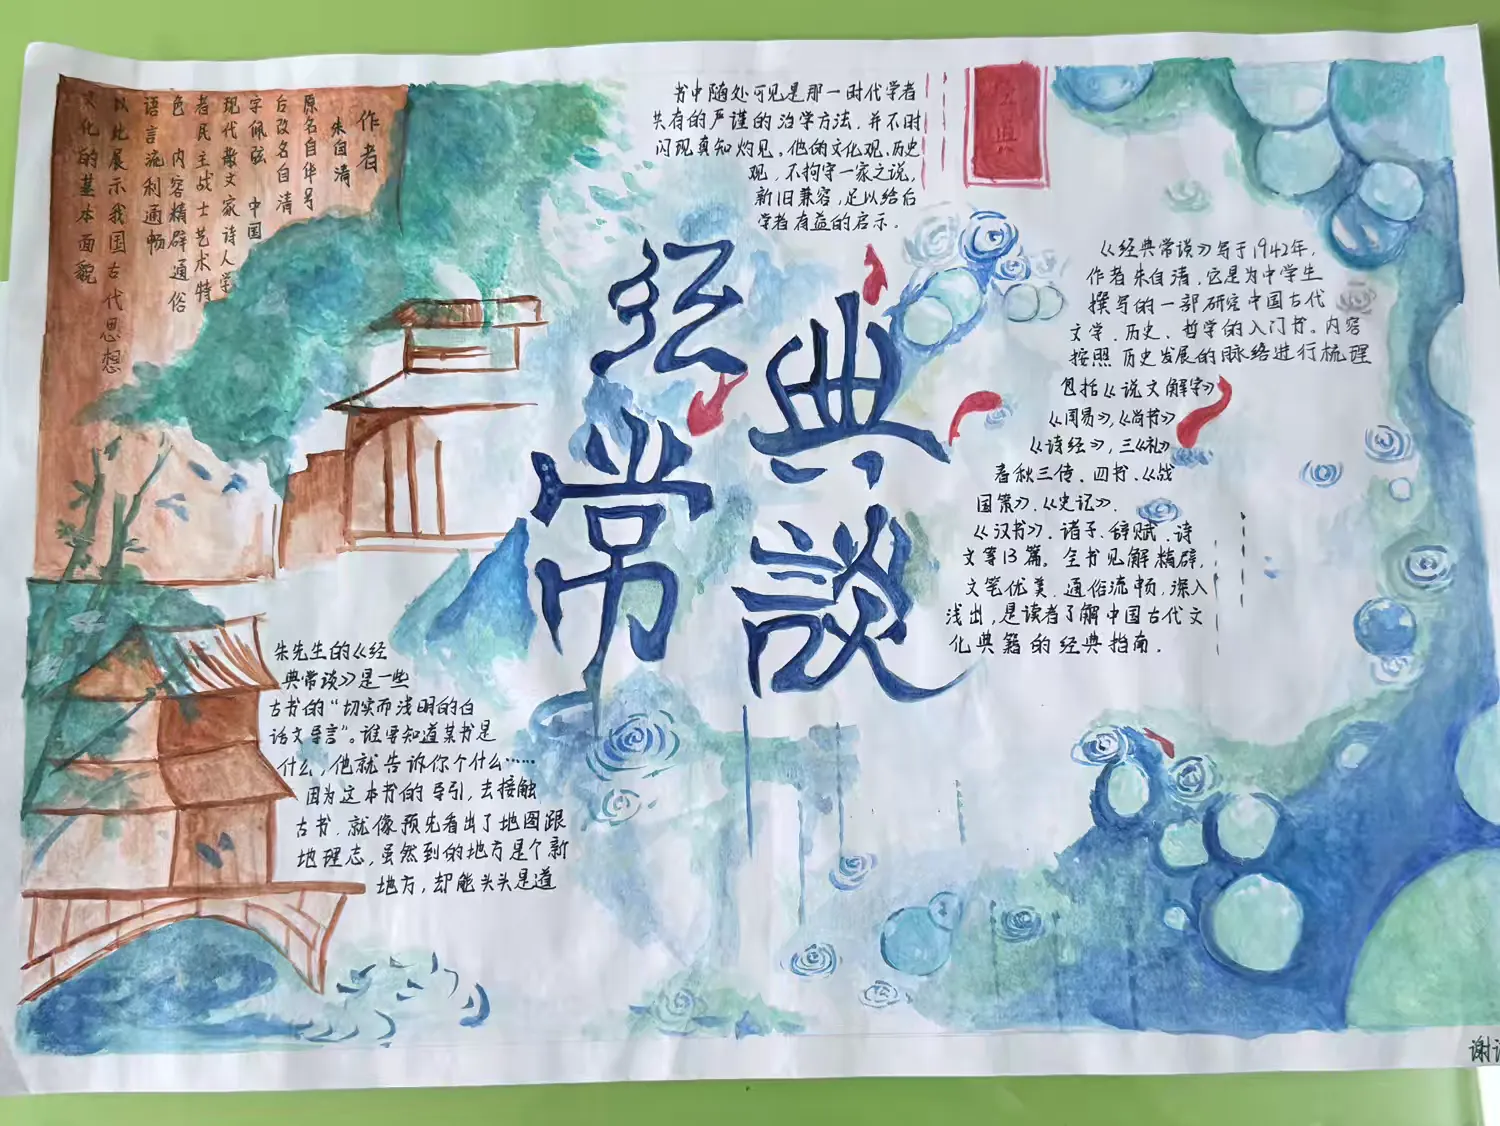 经典
常談
作者
朱自清
原名自华号
后改名自清
字佩弦 中国
现代散文家诗人学
者民主战士艺术特
色 内容精辟通俗
语言流利通畅
以此展示我国古代思想
文化的基本面貌
书中随处可见是那一时代学者
共有的严谨的治学方法,并不时
闪现真知灼见。他的文化观、历史
观,不拘守一家之说,
新旧兼容,足以给后
学者有益的启示.
《经典常谈》写于1942年,
作者朱自清,它是为中学生
撰写的一部研究中国古代
文学、历史、哲学的入门书。内容
按照历史发展的脉络进行梳理
包括《说文解字》
《周易》,《尚书》
《诗经》,三《礼》
春秋三传、四书、《战
国策》、《史记》、
《汉书》、诸子、辞赋、诗
文等13篇。全书见解精辟,
文笔优美、通俗流畅,深入
浅出,是读者了解中国古代文
化典籍的经典指南.
朱先生的《经
典常谈》是一些
古书的“切实而浅明的白
话文导言”。谁要知道某书是
什么,他就告诉你个什么……
因为这本书的导引,去接触
古书,就像预先看出了地图跟
地理志,虽然到的地方是个新
地方,却能头头是道
谢